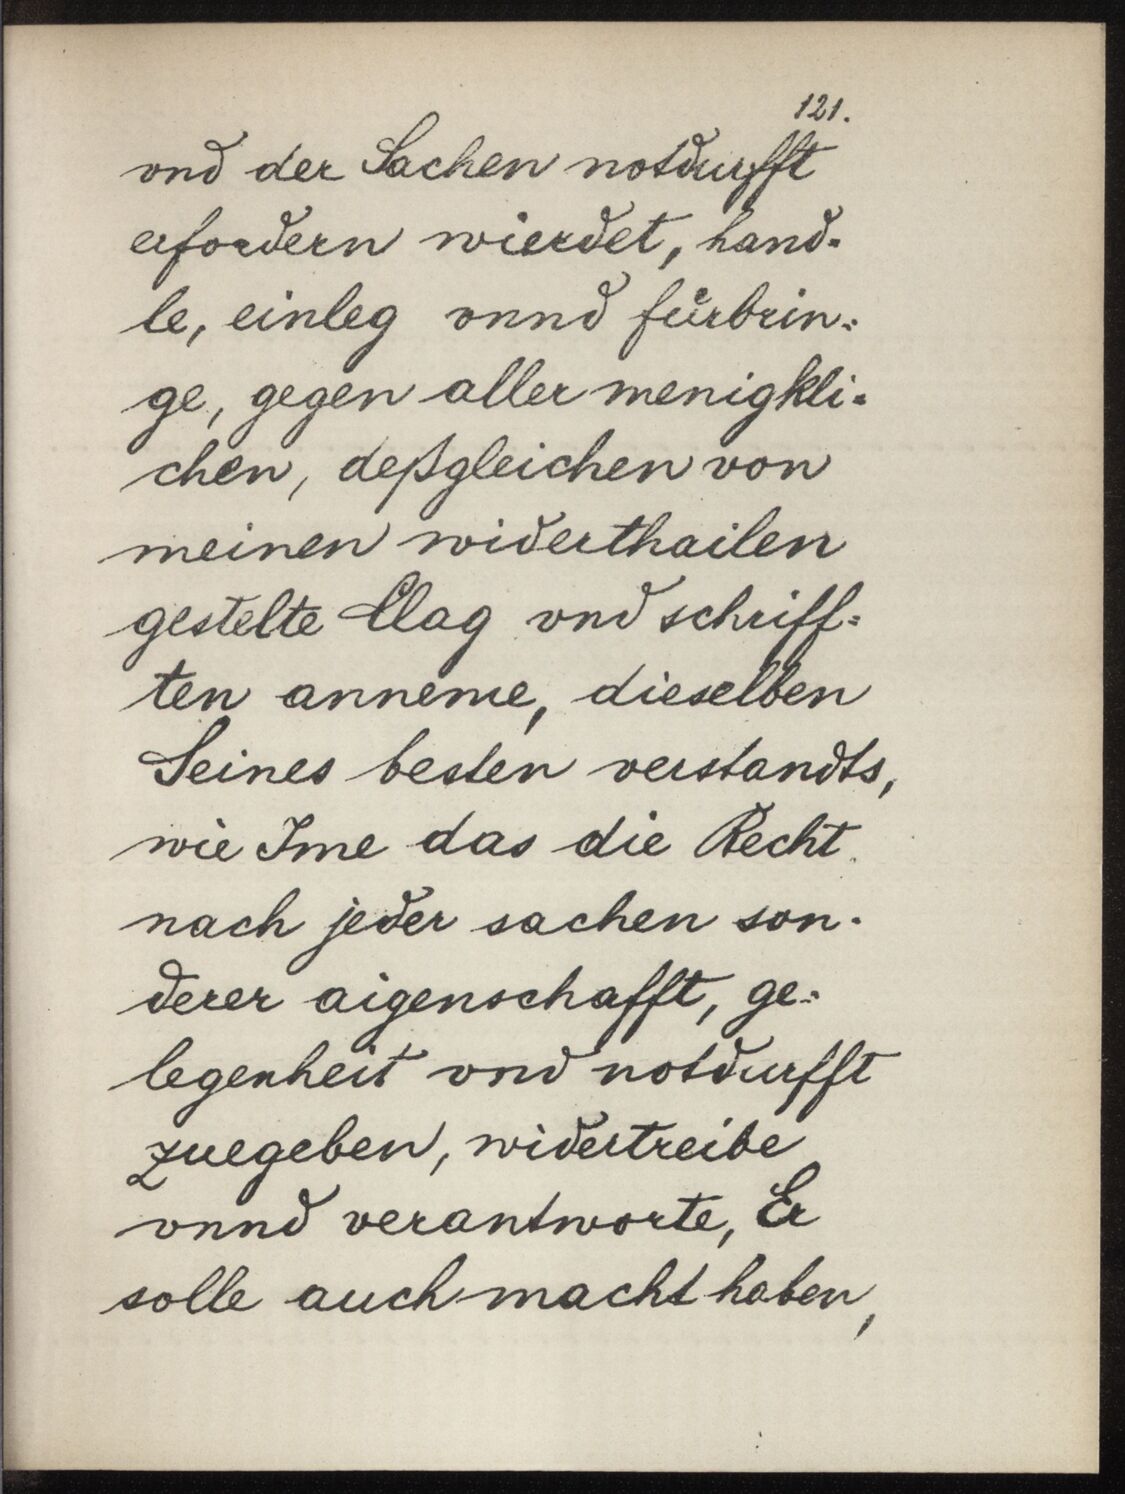 121.
vnd der Sachen notdurfft
erfordern wierdet, hand-
le, einleg vnnd fürbrin-
ge, gegen aller menigkli-
chen, deßgleichen von
meinen widerthailen
gestelte Clag vnd schriff-
ten anneme, dieselben
Seines besten verstandts,
wie Ime das die Recht
nach jeder sachen son-
derer aigenschafft, ge-
legenheit vnd notdurfft
zuegeben, widertreibe
vnnd verantworte, Er
solle auch macht haben,